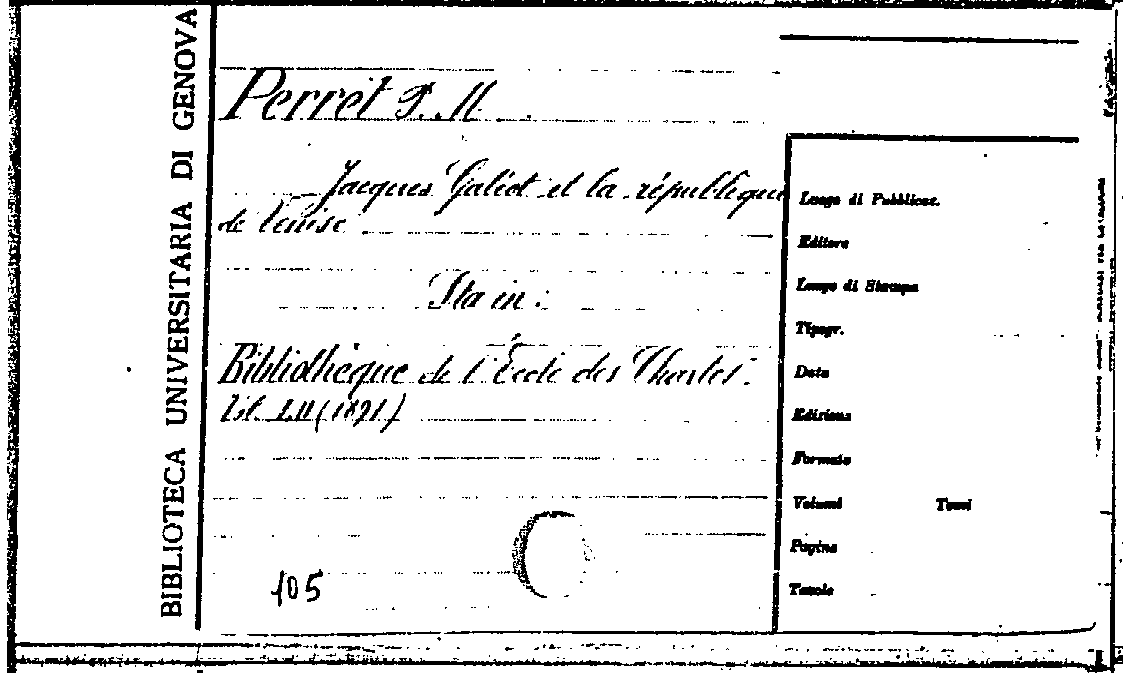 BIBLIOTECA UNIVERSITARIA DI GENOVA
Perret P. M.
Jacques Galéot et la république
de Venise
Sta in:
Bibliothèque de l'École des Chartes.
LII (1891)
105
Luogo di Pubblicaz.
Editore
Luogo di Stampa
Tipogr.
Data
Edizione
Formato
Volumi Tomi
Pagine
Tavole